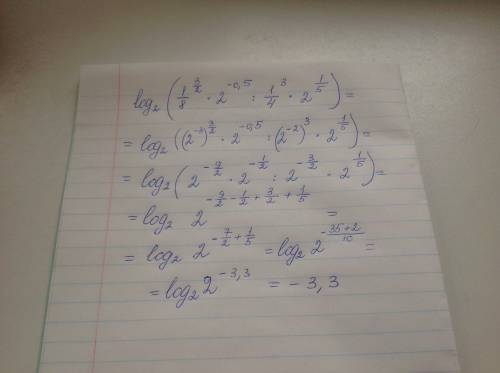 log₂ (1/8^(3/2) · 2^(-0,5) : 1/4^3 · 2^(1/5)) =
= log₂ ((2^(-3))^(3/2) · 2^(-0,5) : (2^(-2))^3 · 2^(1/5)) =
= log₂ (2^(-9/2) · 2^(-1/2) : 2^(-3/2) · 2^(1/5)) =
= log₂ 2^(-9/2 - 1/2 + 3/2 + 1/5) =
= log₂ 2^(-7/2 + 1/5) = log₂ 2^((-35+2)/10) =
= log₂ 2^(-3,3) = -3,3